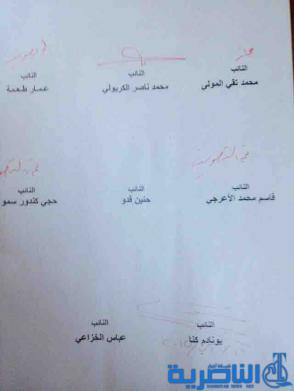 النائب النائب النائب
محمد تقي المولى محمد ناصر الكربولي عمار طعمة
النائب النائب النائب
قاسم محمد الأعرجي حنين قدو حجي كندور سمو
النائب النائب
يونادم كنا عباس الخزاعي
الناصرية